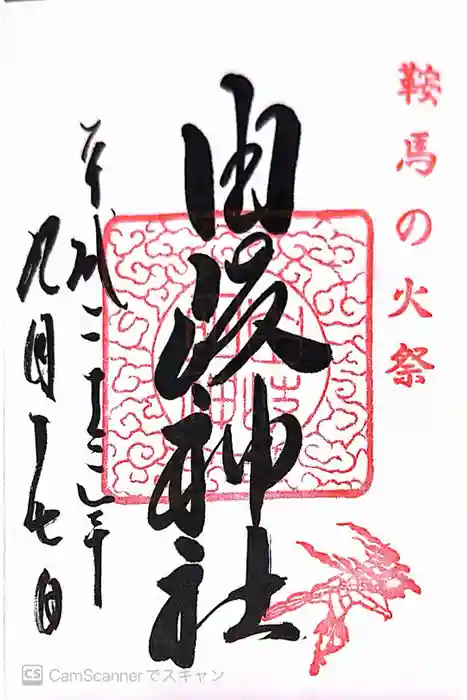 鞍馬の火祭
由岐神社
平成二十年
九月十七日
CS CamScannerでスキャン